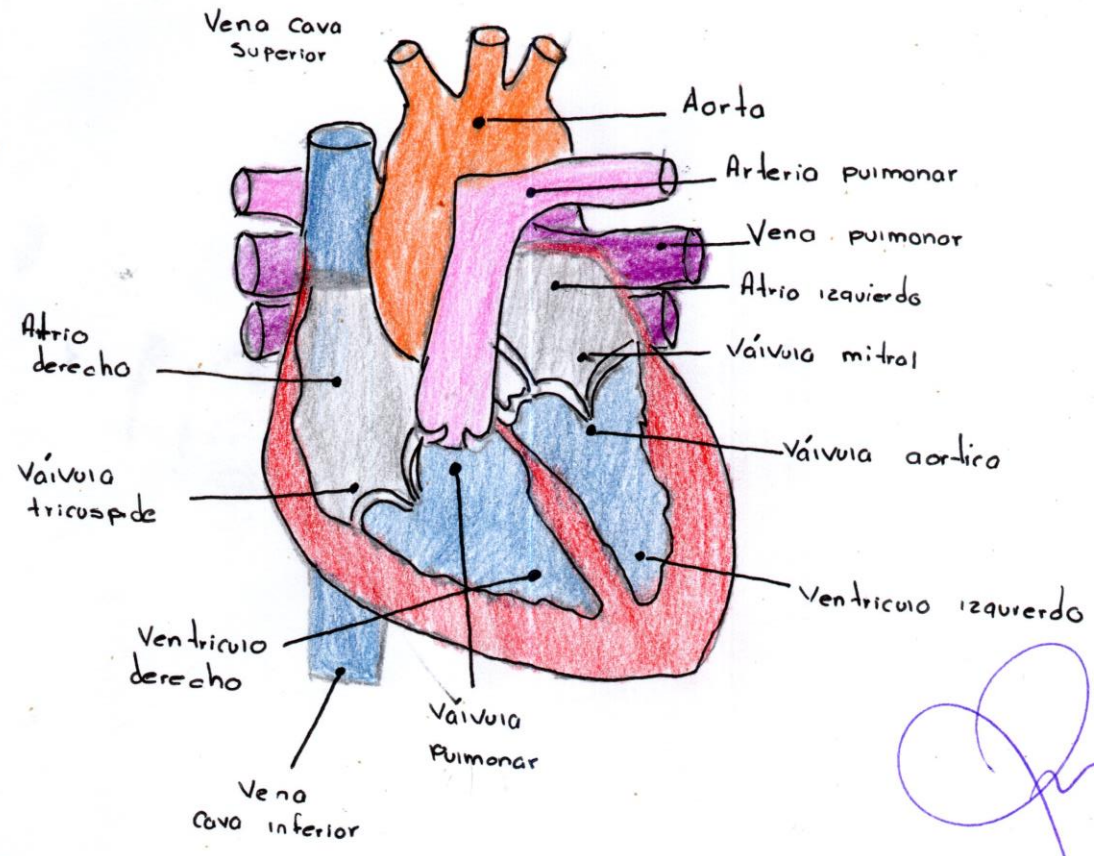 Vena Cava
Superior
Aorta
Arteria pulmonar
Vena pulmonar
Atrio izquierdo
Válvula mitral
Válvula aortica
Ventriculo izquierdo
Atrio
derecho
Válvula
tricuspide
Ventriculo
derecho
Válvula
Pulmonar
Vena
Cava inferior